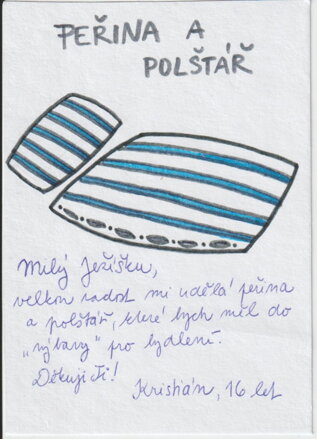 PEŘINA A
POLŠTÁŘ
Milý Ježíšku,
velkou radost mi udělá peřina
a polštář, které bych měl do
„výbavy“ pro bydlení.
Děkuji Ti!
Kristián, 16 let